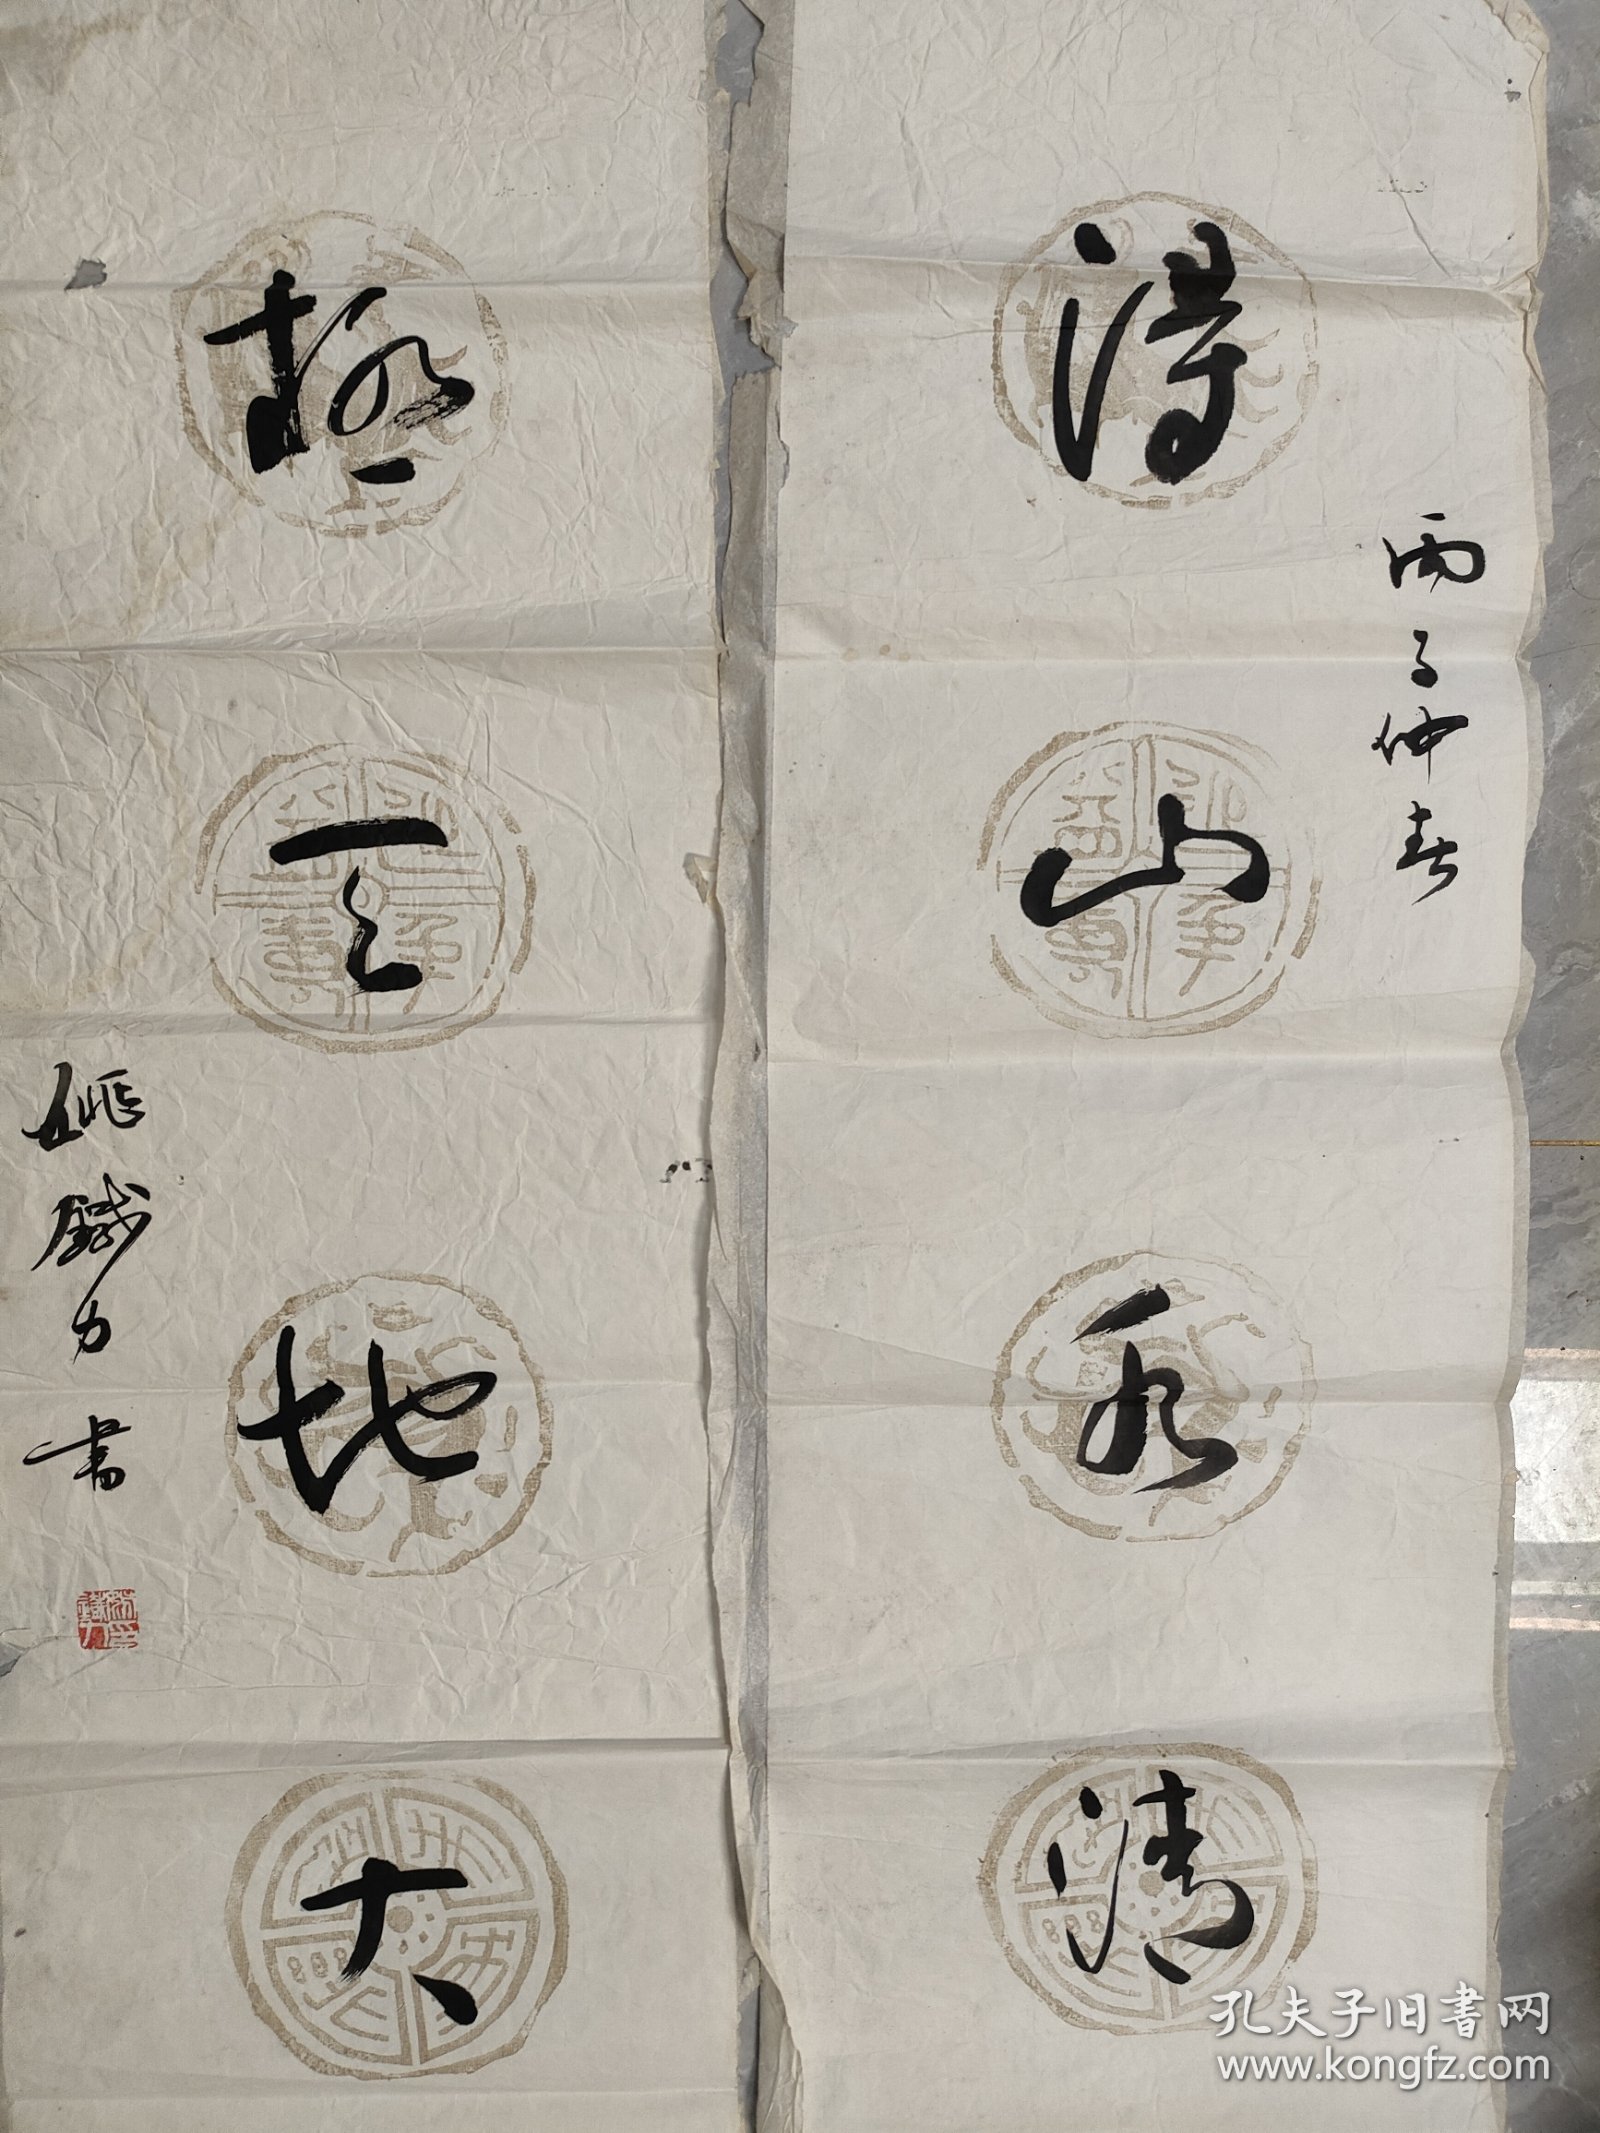 丙子仲春
得山水清
极天地大
姚鐵力書
孔夫子旧书网
www.kongfz.com